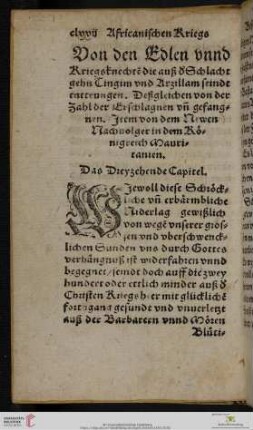 clxvij Africanischen Kriegs
Von den Edlen vnnd
Kriegsknechtē die auß d̕ Schlacht
gehn Tingim vnd Arzillam seindt
entrrungen. Deßgleichen von der
Zahl der Erschlagnen vñ gefang-
nen. Jtem von dem Newen
Nachuolger in dem Kö-
nigreich Mauri-
tanien.
Das Dreyzehende Capitel.
WJewoll diese Schröck-
liche vñ erbärmbliche
Niderlag gewißlich
von wegē vnserer gros-
sen vnd vberschwenck-
lichen Sunden vnd durch Gottes
verhängnuß ist widerfahren vnnd
begegnet/ seindt doch auff die zwey
hundert oder ettlich minder auß d̕
Christen Kriegsher mit glücklichē
fortgang gesundt vnd vnuerletzt
auß der Barbareen vnnd Mören
Blüti-